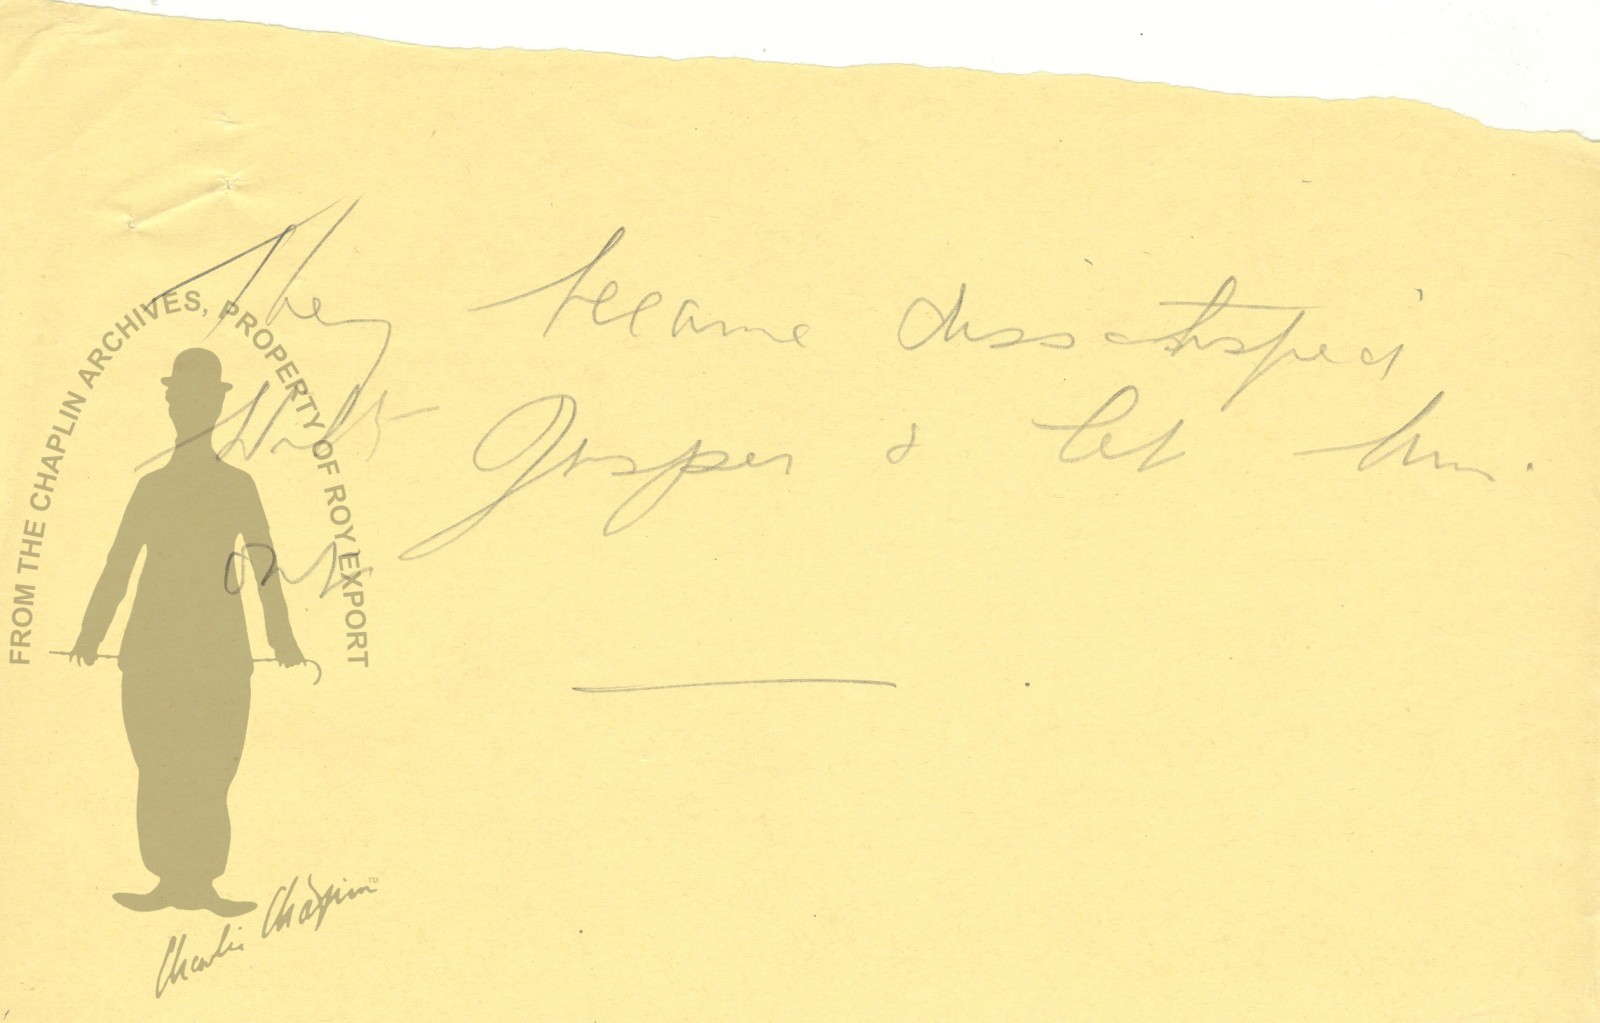 They became dissatisfied
with Jasper & let him.
out.
FROM THE CHAPLIN ARCHIVES, PROPERTY OF ROY EXPORT
Charlie Chaplin™